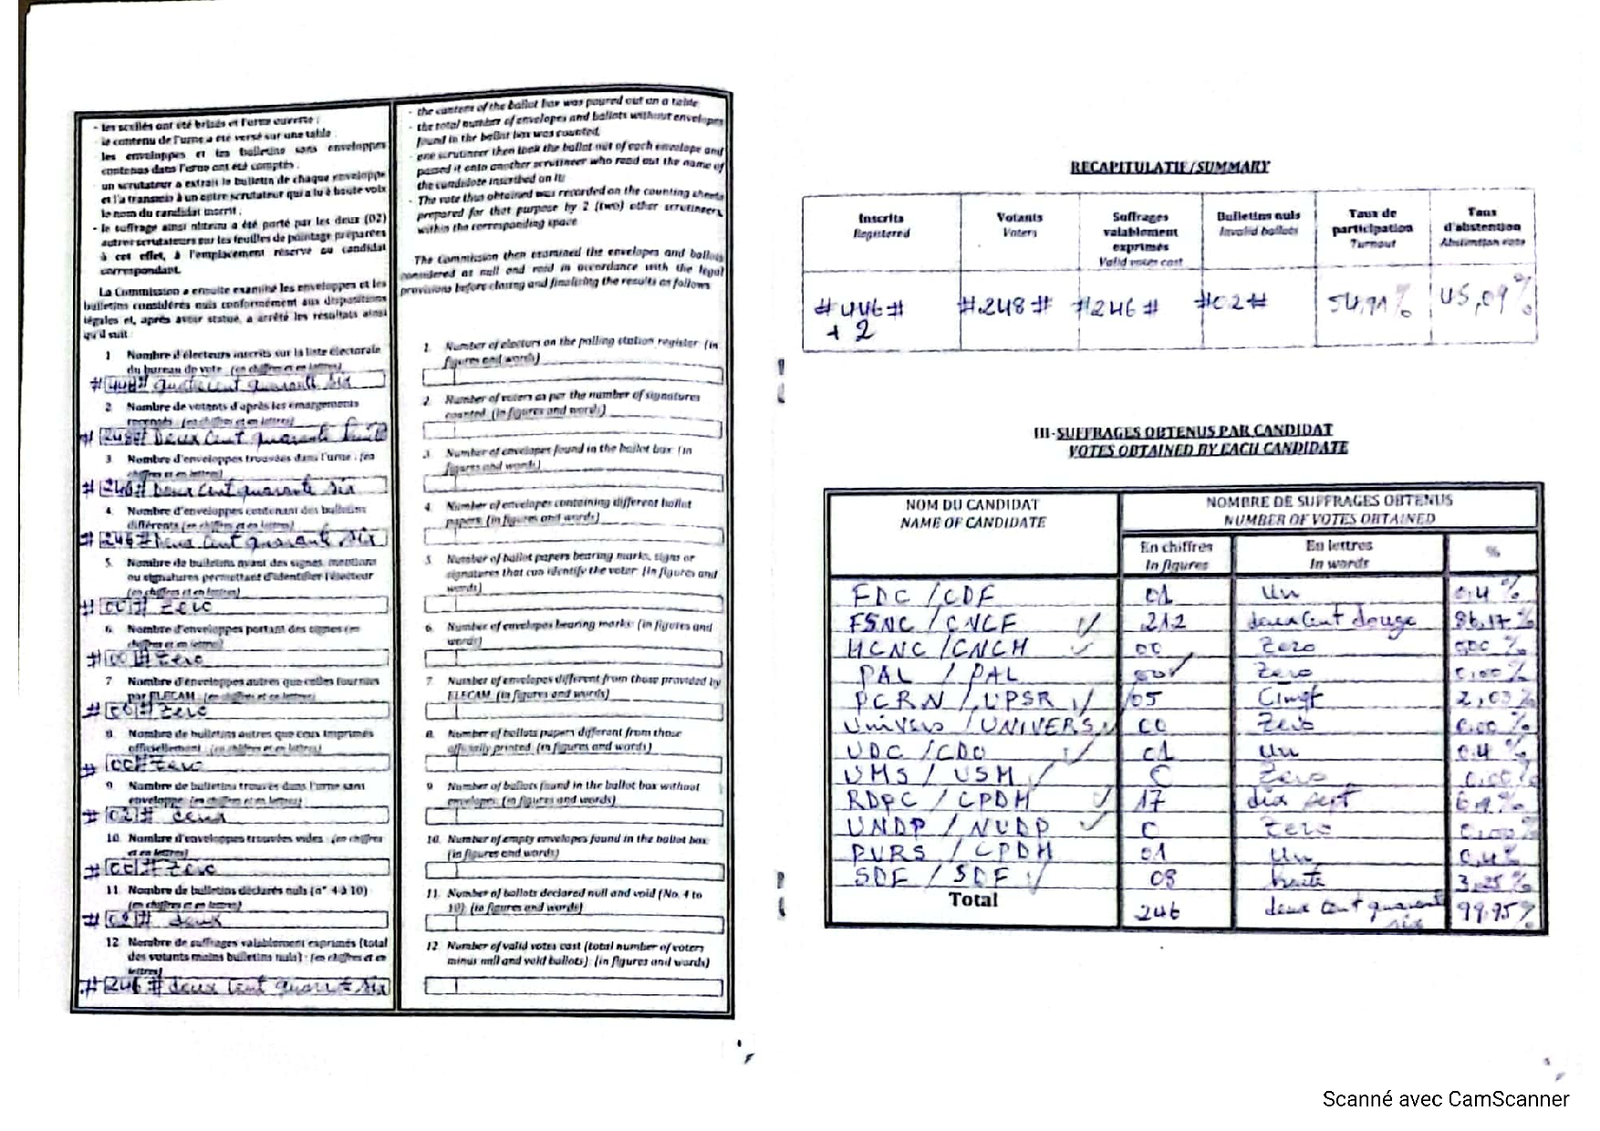 - les scellés ont été brisés et l'urne ouverte ;
- le contenu de l'urne a été versé sur une table ;
les enveloppes et les bulletins sans enveloppes
contenus dans l'urne ont été comptés ;
- un scrutateur a extrait le bulletin de chaque enveloppe
et l'a transmis à un autre scrutateur qui a lu à haute voix
le nom du candidat inscrit ;
- le suffrage ainsi obtenu a été porté par les deux (02)
autres scrutateurs sur les feuilles de pointage préparées
à cet effet, à l'emplacement réservé au candidat
correspondant.
La Commission a ensuite examiné les enveloppes et les
bulletins considérés nuls conformément aux dispositions
légales et, après avoir statué, a arrêté les résultats ainsi
qu'il suit :
1 Nombre d'électeurs inscrits sur la liste électorale
du bureau de vote : (en chiffres et en lettres)
quatre cent quarante six
2. Nombre de votants d'après les émargements
recensés : (en chiffres et en lettres)
# 248# Deux cent quarante huit
3. Nombre d'enveloppes trouvées dans l'urne : (en
chiffres et en lettres)
# 246# Deux cent quarante six
4. Nombre d'enveloppes contenant des bulletins
différents : (en chiffres et en lettres)
# 246 # Deux cent quarante six
5. Nombre de bulletins ayant des signes, mentions
ou signatures permettant d'identifier l'électeur
(en chiffres et en lettres)
# 00 # Zero
6. Nombre d'enveloppes portant des signes (en
chiffres et en lettres)
# 00 # Zero
7 Nombre d'enveloppes autres que celles fournies
par ELECAM : (en chiffres et en lettres)
# 00 # Zero
8. Nombre de bulletins autres que ceux imprimés
officiellement : (en chiffres et en lettres)
# 00 # Zero
9. Nombre de bulletins trouvés dans l'urne sans
enveloppe : (en chiffres et en lettres)
# 02 # deux
10. Nombre d'enveloppes trouvées vides : (en chiffres
et en lettres)
# 00 # Zero
11. Nombre de bulletins déclarés nuls (n° 4 à 10)
(en chiffres et en lettres)
# 02 # deux
12. Nombre de suffrages valablement exprimés (total
des votants moins bulletins nuls) : (en chiffres et en
lettres)
# 246 # deux cent quarante six
- the contens of the ballot box was poured out on a table
- the total number of envelopes and ballots without envelopes
found in the ballot box was counted,
- one scrutineer then took the ballot out of each envelope and
passed it onto another scrutineer who read out the name of
the candidate inscribed on it;
- The vote thus obtained was recorded on the counting sheets
prepared for that purpose by 2 (two) other scrutineers,
within the corresponding space
The Commission then examined the envelopes and ballots
considered as null and void in accordance with the legal
provisions before closing and finalising the results as follows
1. Number of electors on the polling station register: (in
figures and words)
2. Number of voters as per the number of signatures
counted: (in figures and words)
3. Number of envelopes found in the ballot box: (in
figures and words)
4. Number of envelopes containing different ballot
papers: (in figures and words)
5. Number of ballot papers bearing marks, signs or
signatures that can identify the voter: (in figures and
words)
6. Number of envelopes bearing marks: (in figures and
words)
7. Number of envelopes different from those provided by
ELECAM: (in figures and words)
8. Number of ballots papers different from those
officially printed: (in figures and words)
9 Number of ballots found in the ballot box without
envelopes: (in figures and words)
10. Number of empty envelopes found in the ballot box:
(in figures and words)
11. Number of ballots declared null and void (No. 4 to
10): (in figures and words)
12. Number of valid votes cast (total number of voters
minus null and void ballots): (in figures and words)
RECAPITULATIF/SUMMARY
Inscrits Registered Votants Voters Suffrages valablement exprimés Valid votes cast Bulletins nuls Invalid ballots Taux de participation Turnout Taux d'abstention Abstention rate
# 446 # + 2 # 248 # # 246 # # 02 # 54,91 % 45,09 %
III- SUFFRAGES OBTENUS PAR CANDIDAT
VOTES OBTAINED BY EACH CANDIDATE
NOM DU CANDIDAT NOMBRE DE SUFFRAGES OBTENUS
NAME OF CANDIDATE NUMBER OF VOTES OBTAINED
En chiffres En lettres %
In figures In words
FDC / CDF 01 Un 0,4 %
FSNC / CNCF 212 deux cent douze 86,17 %
MCNC / CNCM 00 Zero 0,00 %
PAL / PAL 00 Zero 0,00 %
PCRN / UPSR 05 Cinq 2,03 %
Univers / UNIVERS 00 Zero 0.00 %
UDC / CDU 01 Un 0,4 %
UMS / USM 0 Zero 0,00 %
RDPC / CPDM 17 dix sept 6,9 %
UNDP / NUDP 0 Zero 0,00 %
PURS / CPDM 01 Un 0,4 %
SDF / SDF 08 huite 3,25 %
Total 246 deux cent quarante six 99,95 %
Scanné avec CamScanner